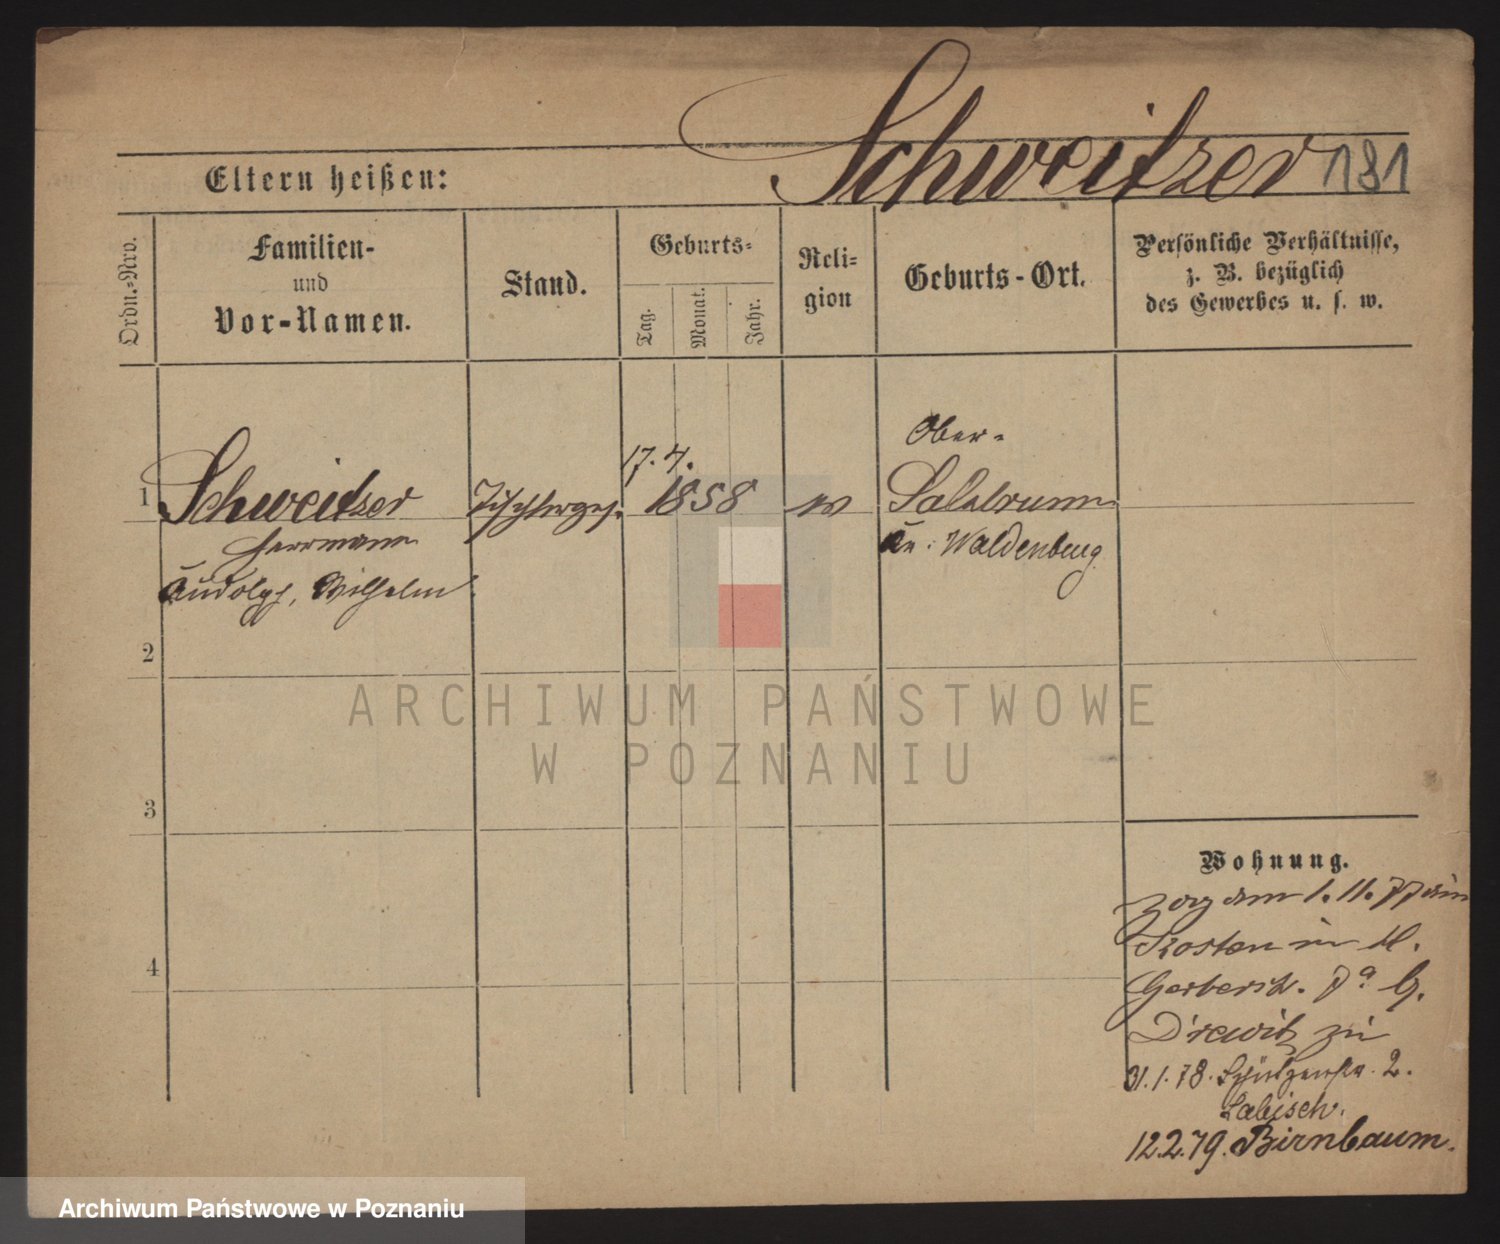 Schweitzer 181
Eltern heißen:
Ordn.-Nro.
Familien-
und
Vor-Namen.
Stand.
Geburts-
Tag.
Monat.
Jahr.
Reli-
gion
Geburts-Ort.
Persönliche Verhältnisse,
z. B. bezüglich
des Gewerbes u. s. w.
Ober-
17. 4.
1 Schweitzer Tischlerges. 1858 Salzbrunn
Herrmann Kr. Waldenburg
Rudolph, Wilhelm
2
3
4
Wohnung.
zog am 1. 11. 77 von
Kosten in Kl.
Gerberstr. 7a b.
Drewitz zu
31.1.78. Schützenstr. 2.
Labisch.
12.2.79. Birnbaum.
ARCHIWUM PAŃSTWOWE
W POZNANIU
Archiwum Państwowe w Poznaniu